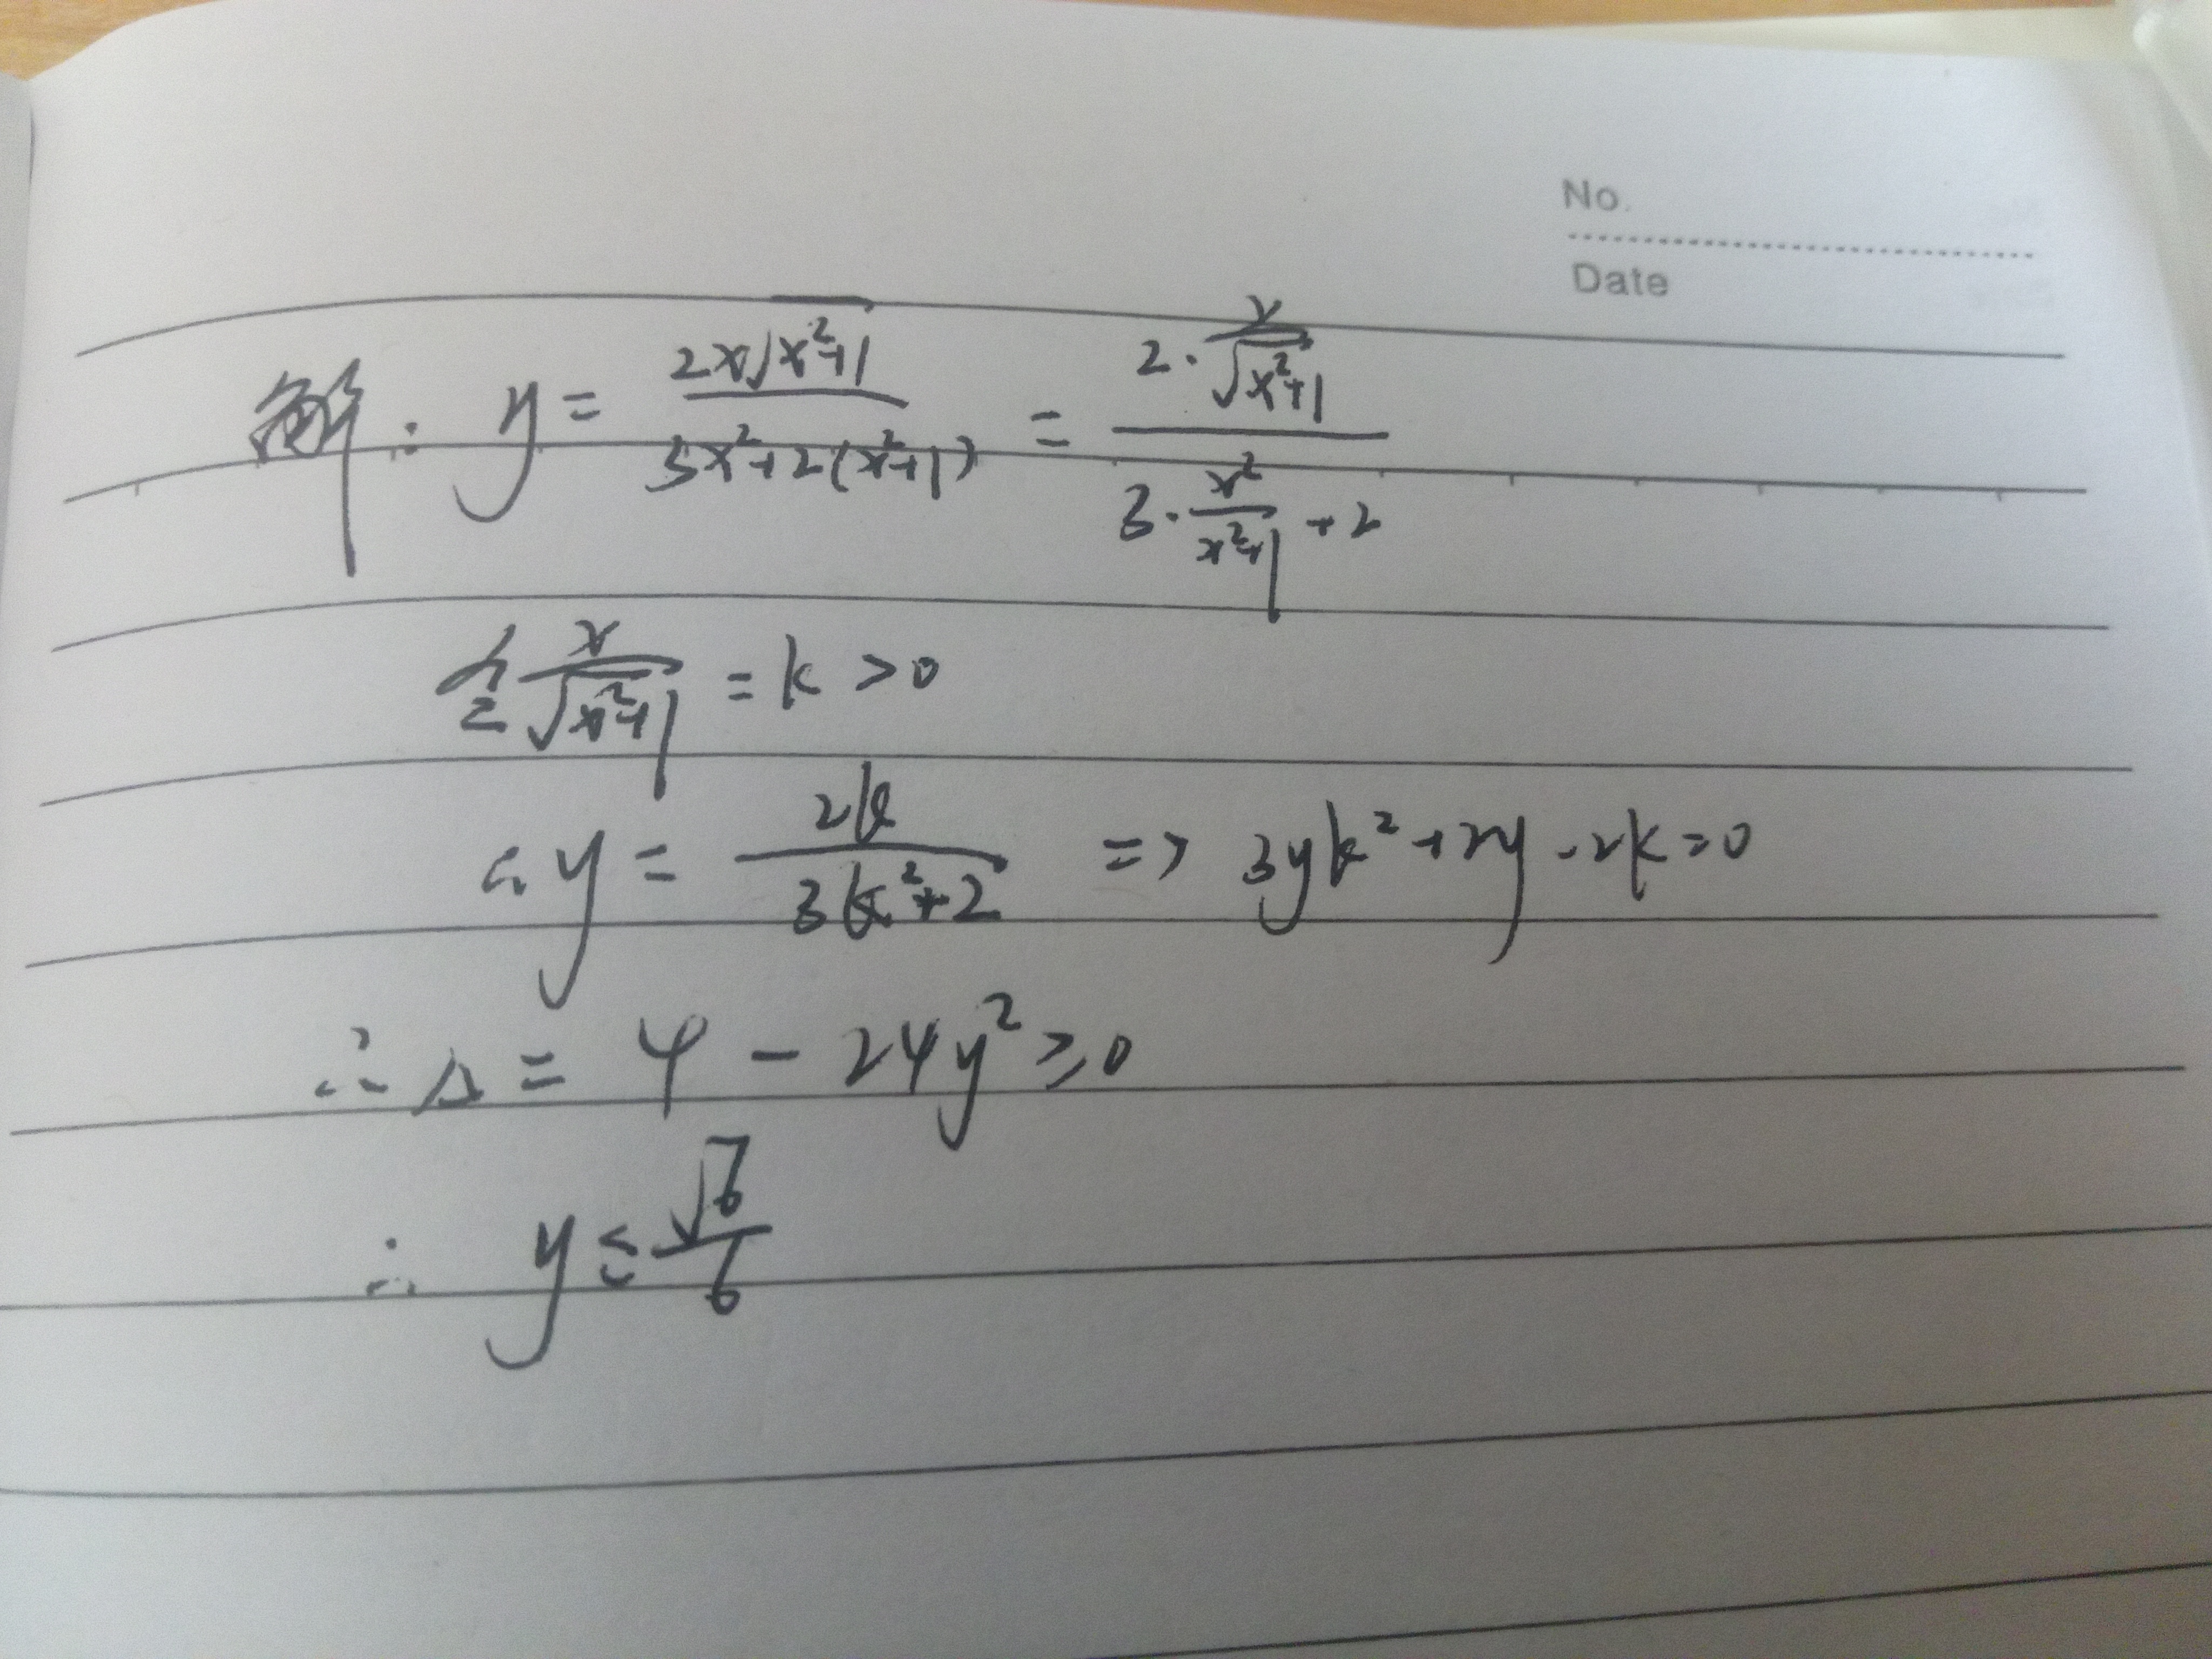 No.
Date
解: y = \frac{2x\sqrt{x^2+1}}{3x^2+2(x^2+1)} = \frac{2 \cdot \frac{x}{\sqrt{x^2+1}}}{3 \cdot \frac{x^2}{x^2+1} + 2}
令 \frac{x}{\sqrt{x^2+1}} = k > 0
∴ y = \frac{2k}{3k^2+2} => 3yk^2 + 2y - 2k = 0
∴ △ = 4 - 24y^2 ≥ 0
∴ y ≤ \frac{\sqrt{6}}{6}